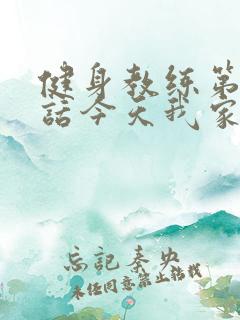 健身教练第
話今天我家
忘記秦央
未经同意禁止转载